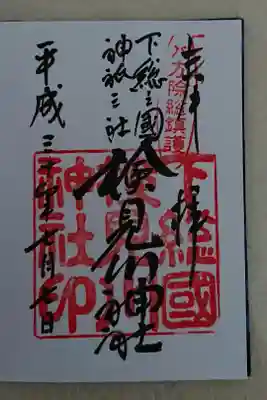 八方除総鎮護
奉拝
下総之國
神祇三社
検見川神社
平成三十年七月七日
下総國
検見川
神社印